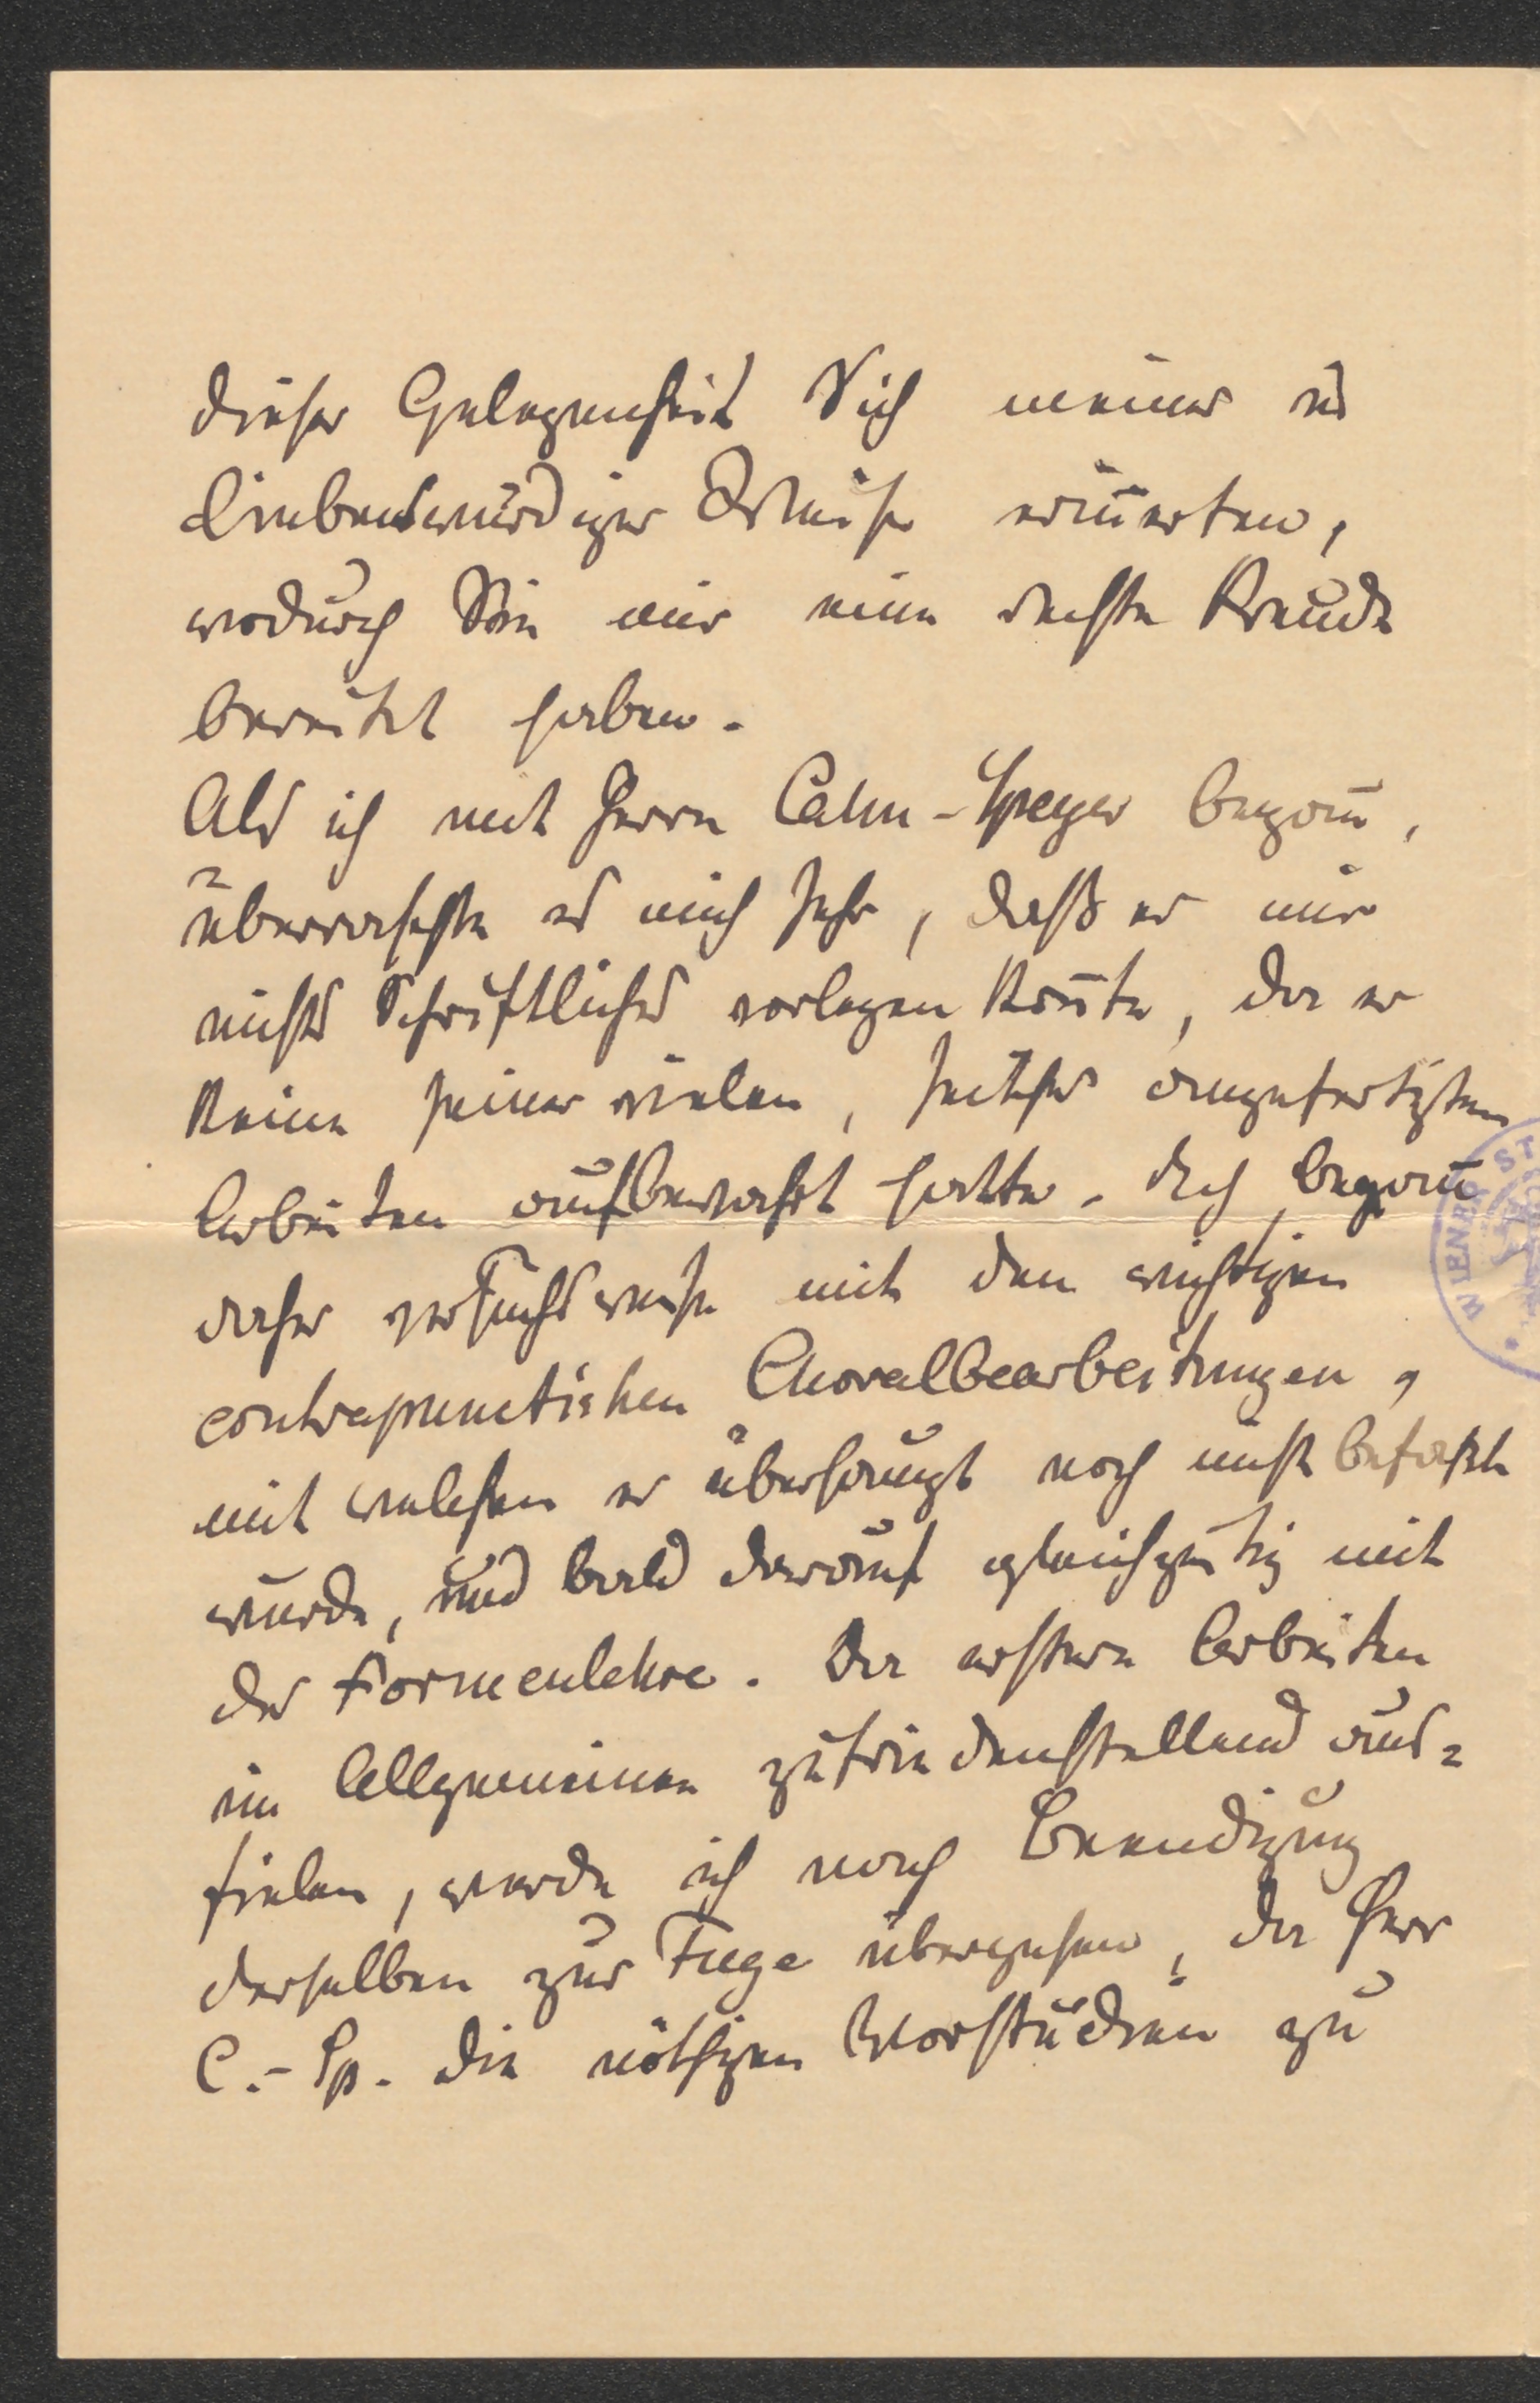 dieser Gelegenheit Sich meiner in
liebenswürdiger Weise erin̄erten,
wodurch Sie mir eine rechte Freude
bereitet haben.
Als ich mit Herrn Cahn-Speyer began̄,
überraschte es mich sehr, daß er mir
nichts Schriftliches vorlegen kon̄te, da er
keine seiner vielen, seither angefertigten
Arbeiten aufbewahrt hatte. Ich began̄
daher versuchsweise mit den wichtigen
contrapunctischen Choralbearbeitungen,
mit welchen er überhaupt noch nicht befaßt
wurde, und bald darauf gleichzeitig mit
der Formenlehre. Da erstere Arbeiten
im Allgemeinen zufriedenstellend aus=
fielen, werde ich nach Beendigung
derselben zur Fuge übergehen, da Herr
C.-Sp. die nöthigen Vorstudien zu
WIENER ST